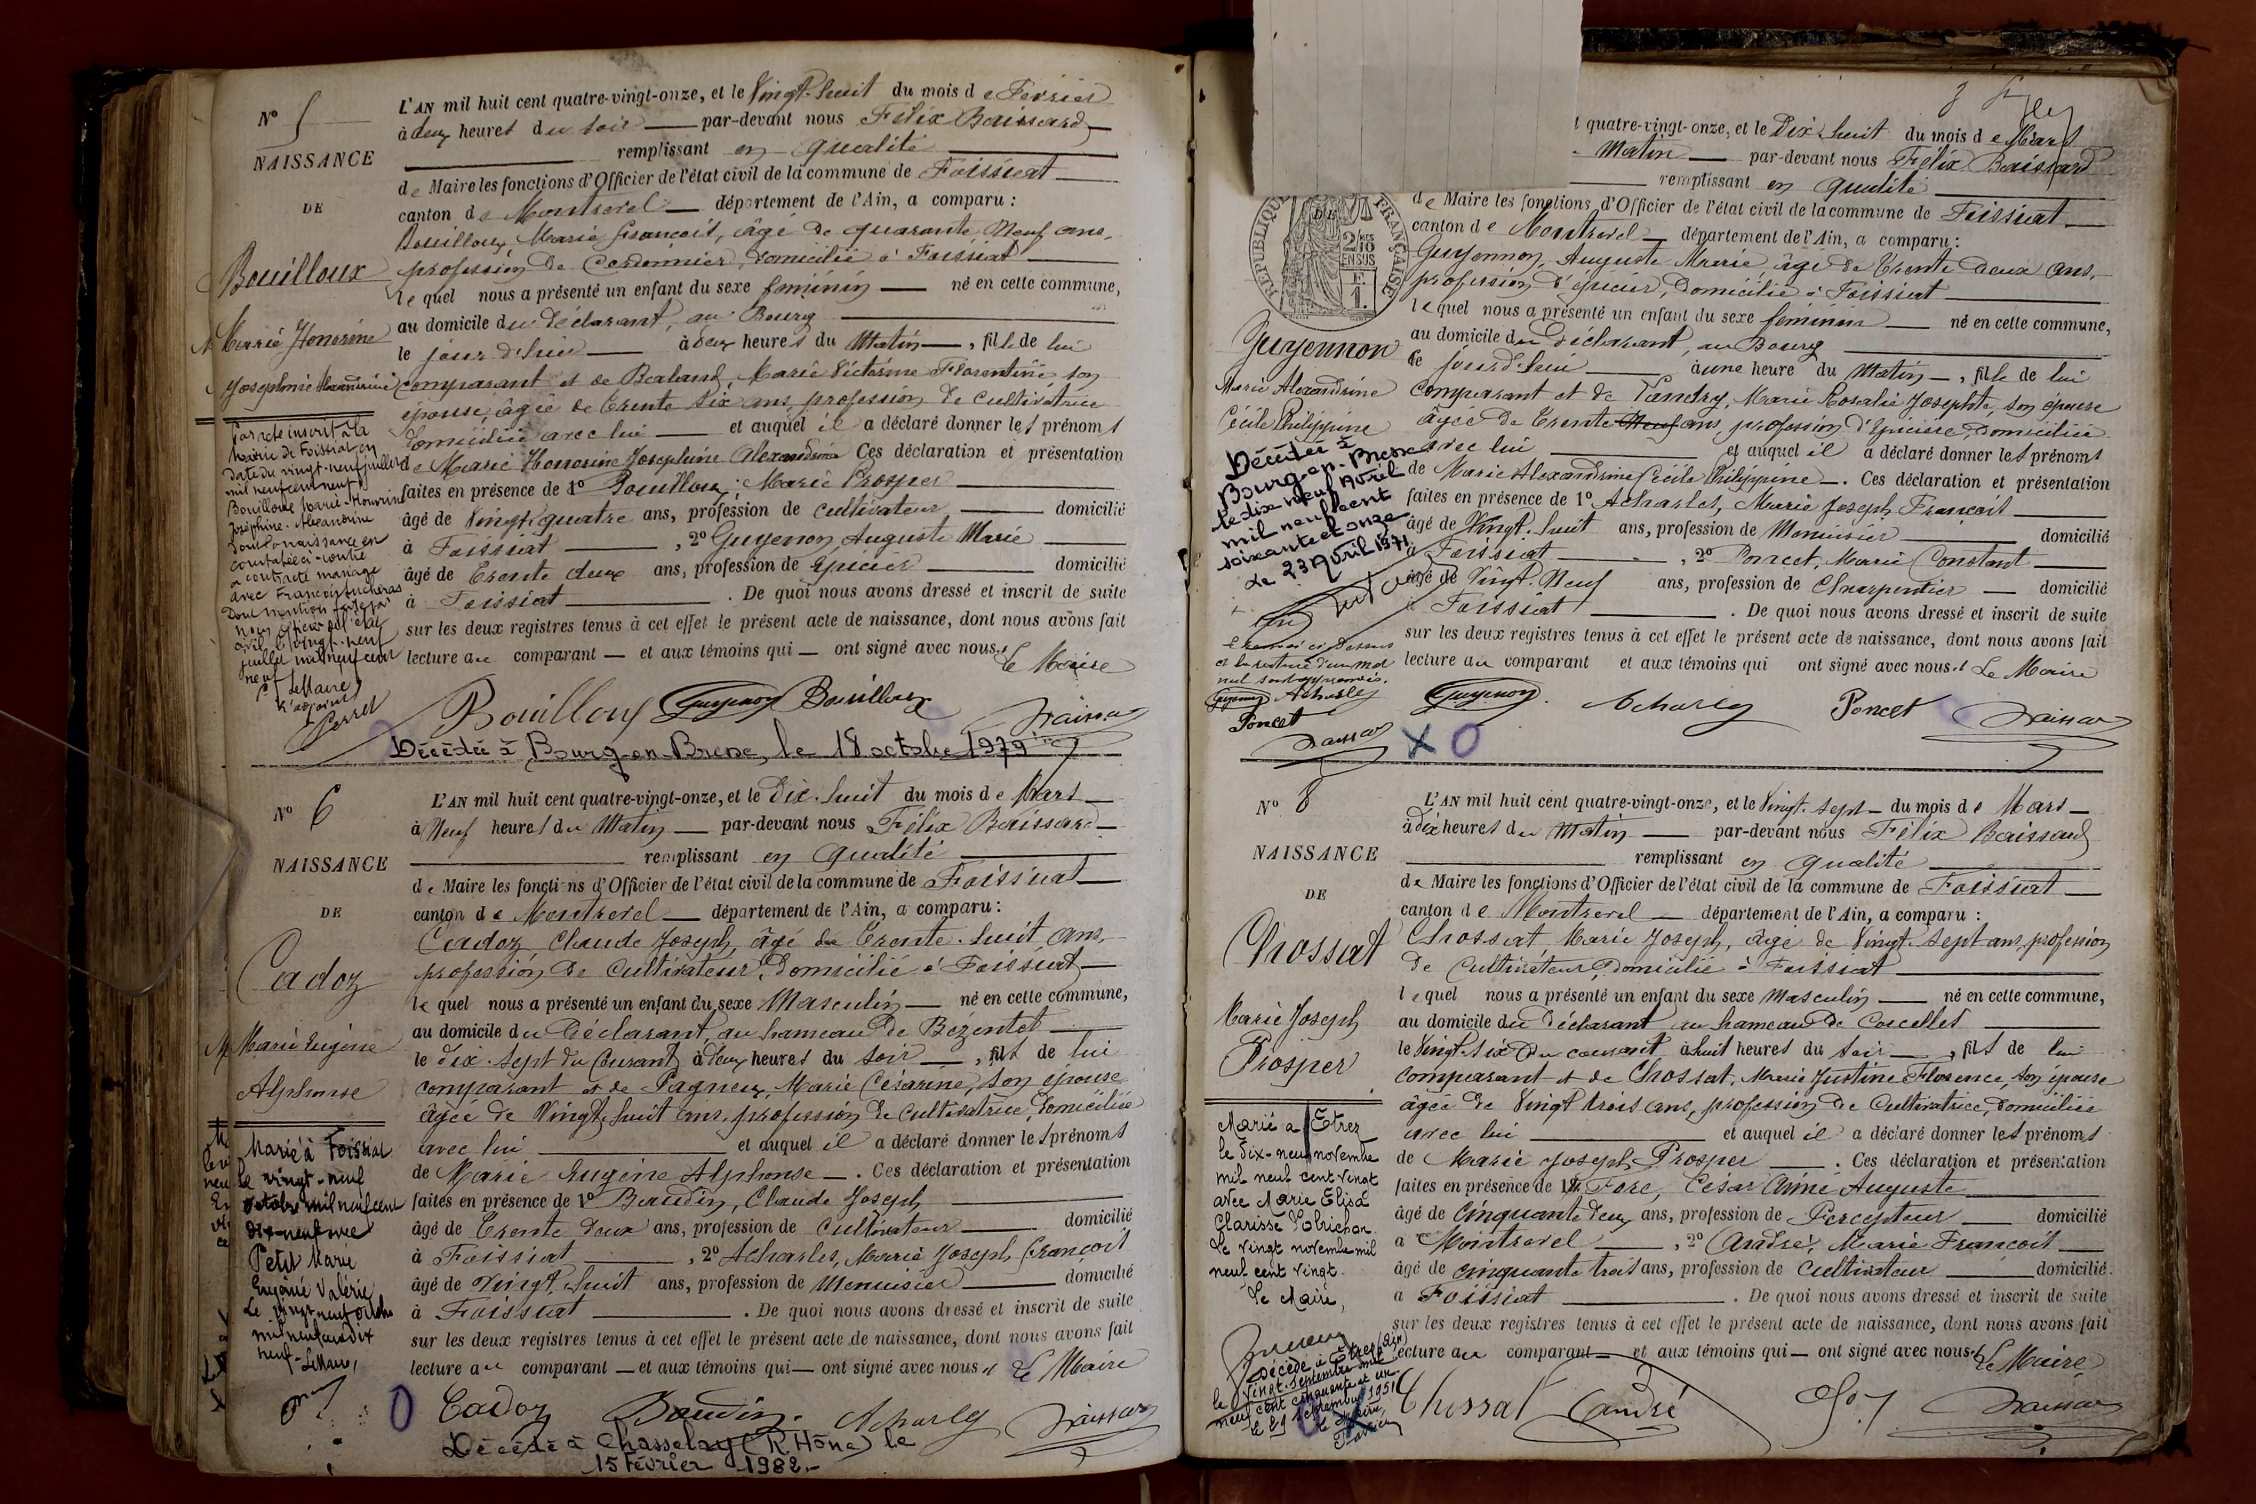 N° 5
NAISSANCE
DE
Bouilloux
Marie Honorine
Joséphine Alexandrine
Par acte inscrit à la
Mairie de Foissiat en
date du vingt-neuf juillet
mil neuf cent neuf
Bouilloux Marie-Honorine
Joséphine-Alexandrine
dont la naissance est
constatée ci-contre
a contracté mariage
avec François
Dont mention faite par
nous officier de l'état
civil le vingt-neuf
juillet mil neuf cent
neuf
Le Maire
Perret
L'AN mil huit cent quatre-vingt-onze, et le Vingt-huit du mois de Février
à deux heures du soir par-devant nous Félix Baissard
remplissant en qualité
de Maire les fonctions d'Officier de l'état civil de la commune de Foissiat
canton de Montrevel département de l'Ain, a comparu :
Bouilloux, Marie François, âgé de quarante Neuf ans,
profession de Cordonnier, domicilié à Foissiat
lequel nous a présenté un enfant du sexe féminin né en cette commune,
au domicile du Déclarant, au Bourg
le jour d'hui à deux heures du Matin, fille de lui
comparant et de Berland, Marie Victorine Florentine son
épouse, âgée de trente six ans, profession de Cultivatrice
domiciliée avec lui et auquel il a déclaré donner les prénoms
de Marie Honorine Joséphine Alexandrine Ces déclaration et présentation
faites en présence de 1° Bouilloux, Marie Prosper
âgé de Vingt quatre ans, profession de cultivateur domicilié
à Foissiat, 2° Guyenon, Auguste Marie
âgé de trente deux ans, profession de Epicier domicilié
à Foissiat. De quoi nous avons dressé et inscrit de suite
sur les deux registres tenus à cet effet le présent acte de naissance, dont nous avons fait
lecture au comparant et aux témoins qui ont signé avec nous. Le Maire
Bouilloux Guyenon Bouilloux Baissard
Décédée à Bourg-en-Bresse, le 18 octobre 1979
N° 6
NAISSANCE
DE
Cadoz
Marie Eugène
Alphonse
Marié à Foissiat
le vingt-neuf
octobre mil neuf cent
dix-neuf avec
Petit Marie
Eugénie Valérie
Le vingt neuf octobre
mil neuf cent dix
neuf - Le Maire,
L'AN mil huit cent quatre-vingt-onze, et le Dix-huit du mois de Mars
à Neuf heures du Matin par-devant nous Félix Baissard
remplissant en qualité
de Maire les fonctions d'Officier de l'état civil de la commune de Foissiat
canton de Montrevel département de l'Ain, a comparu :
Cadoz Claude Joseph, âgé de Trente-huit ans,
profession de Cultivateur, domicilié à Foissiat
lequel nous a présenté un enfant du sexe Masculin né en cette commune,
au domicile du Déclarant, au hameau de Bézentet
le dix-sept du Courant à deux heures du soir, fils de lui
comparant et de Pagneux, Marie Césarine, son épouse
âgée de Vingt-huit ans, profession de cultivatrice, domiciliée
avec lui et auquel il a déclaré donner les prénoms
de Marie Eugène Alphonse. Ces déclaration et présentation
faites en présence de 1° Beaudin, Claude Joseph
âgé de Trente deux ans, profession de Cultivateur domicilié
à Foissiat, 2° Acharles, Marie Joseph François
âgé de Vingt-huit ans, profession de Menuisier domicilié
à Foissiat. De quoi nous avons dressé et inscrit de suite
sur les deux registres tenus à cet effet le présent acte de naissance, dont nous avons fait
lecture au comparant et aux témoins qui ont signé avec nous. Le Maire
Cadoz Baudin Acharles Baissard
Décédé à Chasselay (Rhône) le
15 Février 1982.-
RÉPUBLIQUE FRANÇAISE
Guyennon
Marie Alexandrine
Cécile Philippine
Décédée à
Bourg-en-Bresse
le dix neuf Avril
mil neuf cent
soixante et onze
Le 23 Avril 1971
Le renvoi ci-dessus
et la rature d'un mot
nul sont approuvés.
Guyenon Acharles
Poncet
Baissard
t quatre-vingt-onze, et le Dix-huit du mois de Mars
Matin par-devant nous Félix Baissard
remplissant en qualité
de Maire les fonctions d'Officier de l'état civil de la commune de Foissiat
canton de Montrevel département de l'Ain, a comparu :
Guyennon, Auguste Marie âgé de Trente Deux ans,
profession d'épicier, Domicilié à Foissiat
lequel nous a présenté un enfant du sexe féminin né en cette commune,
au domicile du Déclarant, au Bourg
le jour d'hui à une heure du Matin, fille de lui
comparant et de Tandry, Marie Rosalie Josephte, son épouse
âgée de Trente Neuf ans, profession d'Epicière, Domiciliée
avec lui et auquel il a déclaré donner les prénoms
de Marie Alexandrine Cécile Philippine. Ces déclaration et présentation
faites en présence de 1° Acharles, Marie Joseph François
âgé de Vingt-huit ans, profession de Menuisier domicilié
à Foissiat, 2° Poncet, Marie Constant
âgé de Vingt-Neuf ans, profession de Charpentier domicilié
à Foissiat. De quoi nous avons dressé et inscrit de suite
sur les deux registres tenus à cet effet le présent acte de naissance, dont nous avons fait
lecture au comparant et aux témoins qui ont signé avec nous. Le Maire
Guyenon Acharles Poncet Baissard
N° 8
NAISSANCE
DE
Chossat
Marie Joseph
Prosper
Marié à Etrez
le dix-neuf novembre
mil neuf cent vingt
avec Marie Elisa
Clarisse
Le vingt novembre mil
neuf cent vingt.
Le Maire,
Décédé à Etrez (Ain)
le vingt septembre mil
neuf cent cinquante et un
le 29 septembre 1951
Le Maire,
L'AN mil huit cent quatre-vingt-onze, et le Vingt-sept du mois de Mars
à dix heures du Matin par-devant nous Félix Baissard
remplissant en qualité
de Maire les fonctions d'Officier de l'état civil de la commune de Foissiat
canton de Montrevel département de l'Ain, a comparu :
Chossat Marie Joseph, âgé de Vingt-sept ans, profession
de Cultivateur, Domicilié à Foissiat
lequel nous a présenté un enfant du sexe Masculin né en cette commune,
au domicile du Déclarant au hameau de Corcelles
le Vingt-six du courant à huit heures du soir, fils de lui
comparant et de Chossat, Marie Justine Florence, son épouse
âgée de Vingt trois ans, profession de Cultivatrice, domiciliée
avec lui et auquel il a déclaré donner les prénoms
de Marie Joseph Prosper. Ces déclaration et présentation
faites en présence de 1° Fore, César Aimé Auguste
âgé de Cinquante deux ans, profession de Percepteur domicilié
à Montrevel, 2° André, Marie François
âgé de cinquante trois ans, profession de Cultivateur domicilié
à Foissiat. De quoi nous avons dressé et inscrit de suite
sur les deux registres tenus à cet effet le présent acte de naissance, dont nous avons fait
lecture au comparant et aux témoins qui ont signé avec nous. Le Maire
Chossat André Baissard